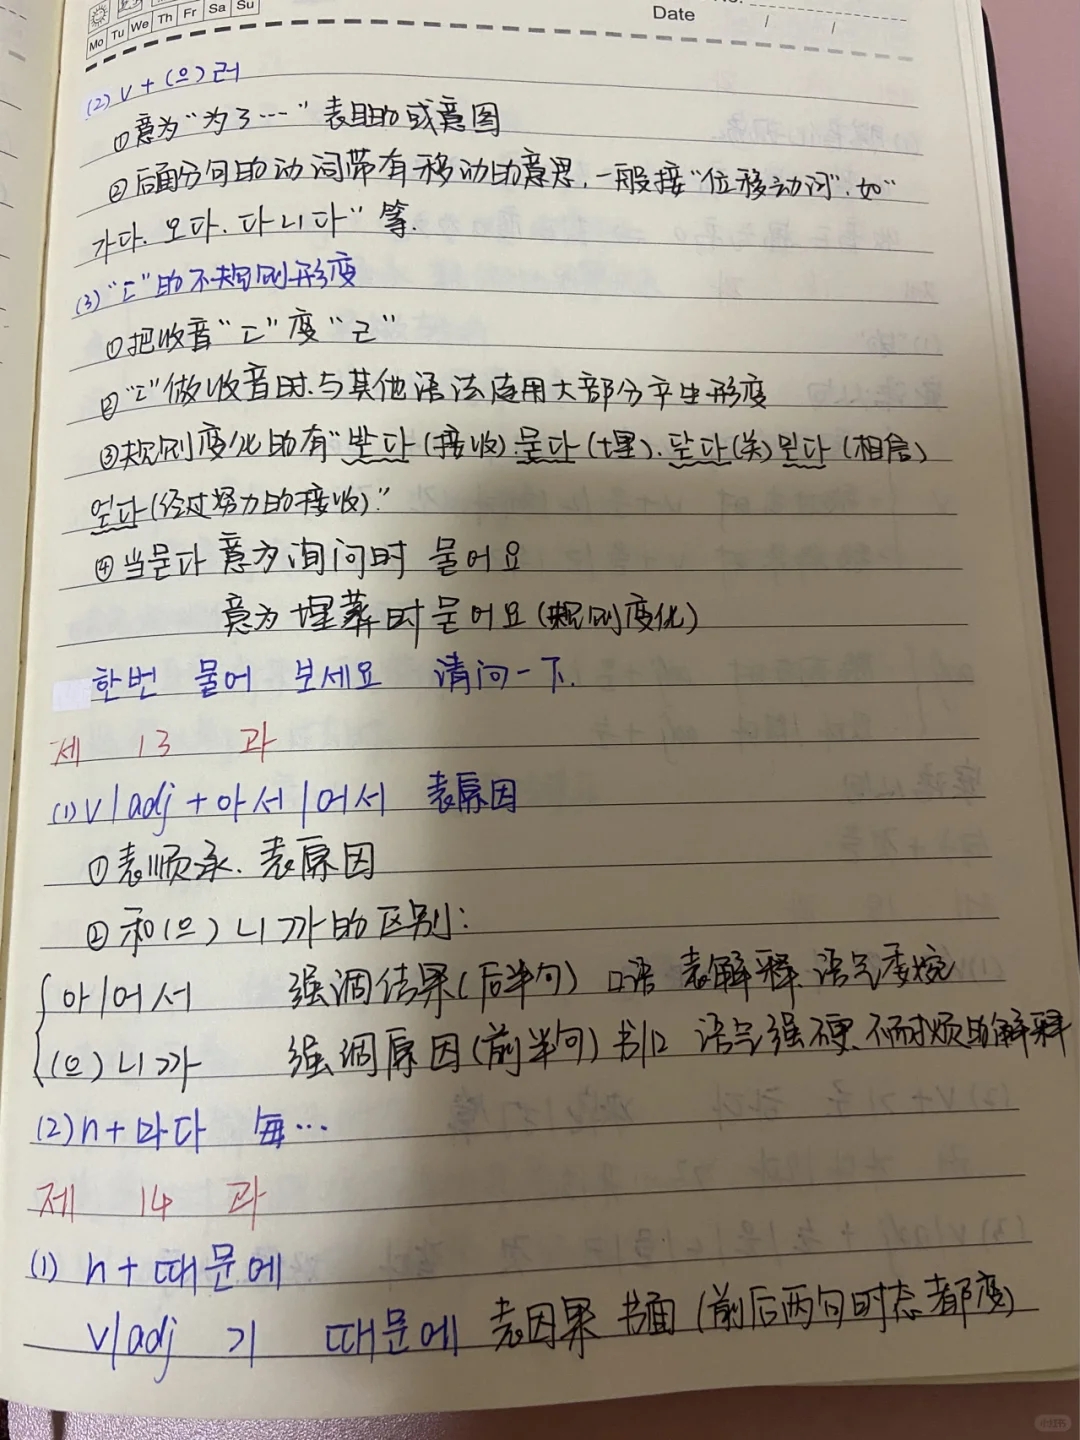 Mo Tu We Th Fr Sa Su
Date / /
(2) v + (으)러
①意为"为了…" 表目的或意图
②后面分句的动词带有移动的意思,一般接"位移动词",如"
가다. 오다. 다니다" 等.
(3) "ㄷ"的不规则形变
①把收音"ㄷ"变"ㄹ"
②"ㄷ"做收音时.与其他语法连用大部分产生形变
③规则变化的有"받다(接收).묻다(埋).닫다(关)믿다(相信)
얻다(经过努力的接收)"
④当묻다 意为询问时 물어요
意为埋葬时묻어요(规则变化)
한번 물어 보세요 请问一下.
제 13 과
(1) v|adj + 아서|어서 表原因
①表顺承.表原因
②和(으)니까的区别:
아|어서 强调结果(后半句) 口语 表解释 语气委婉
(으)니까 强调原因(前半句)书|口 语气强硬.不耐烦的解释
(2) n + 마다 每…
제 14 과
(1) n + 때문에
v|adj 기 때문에 表因果 书面(前后两句时态都变)
小红书